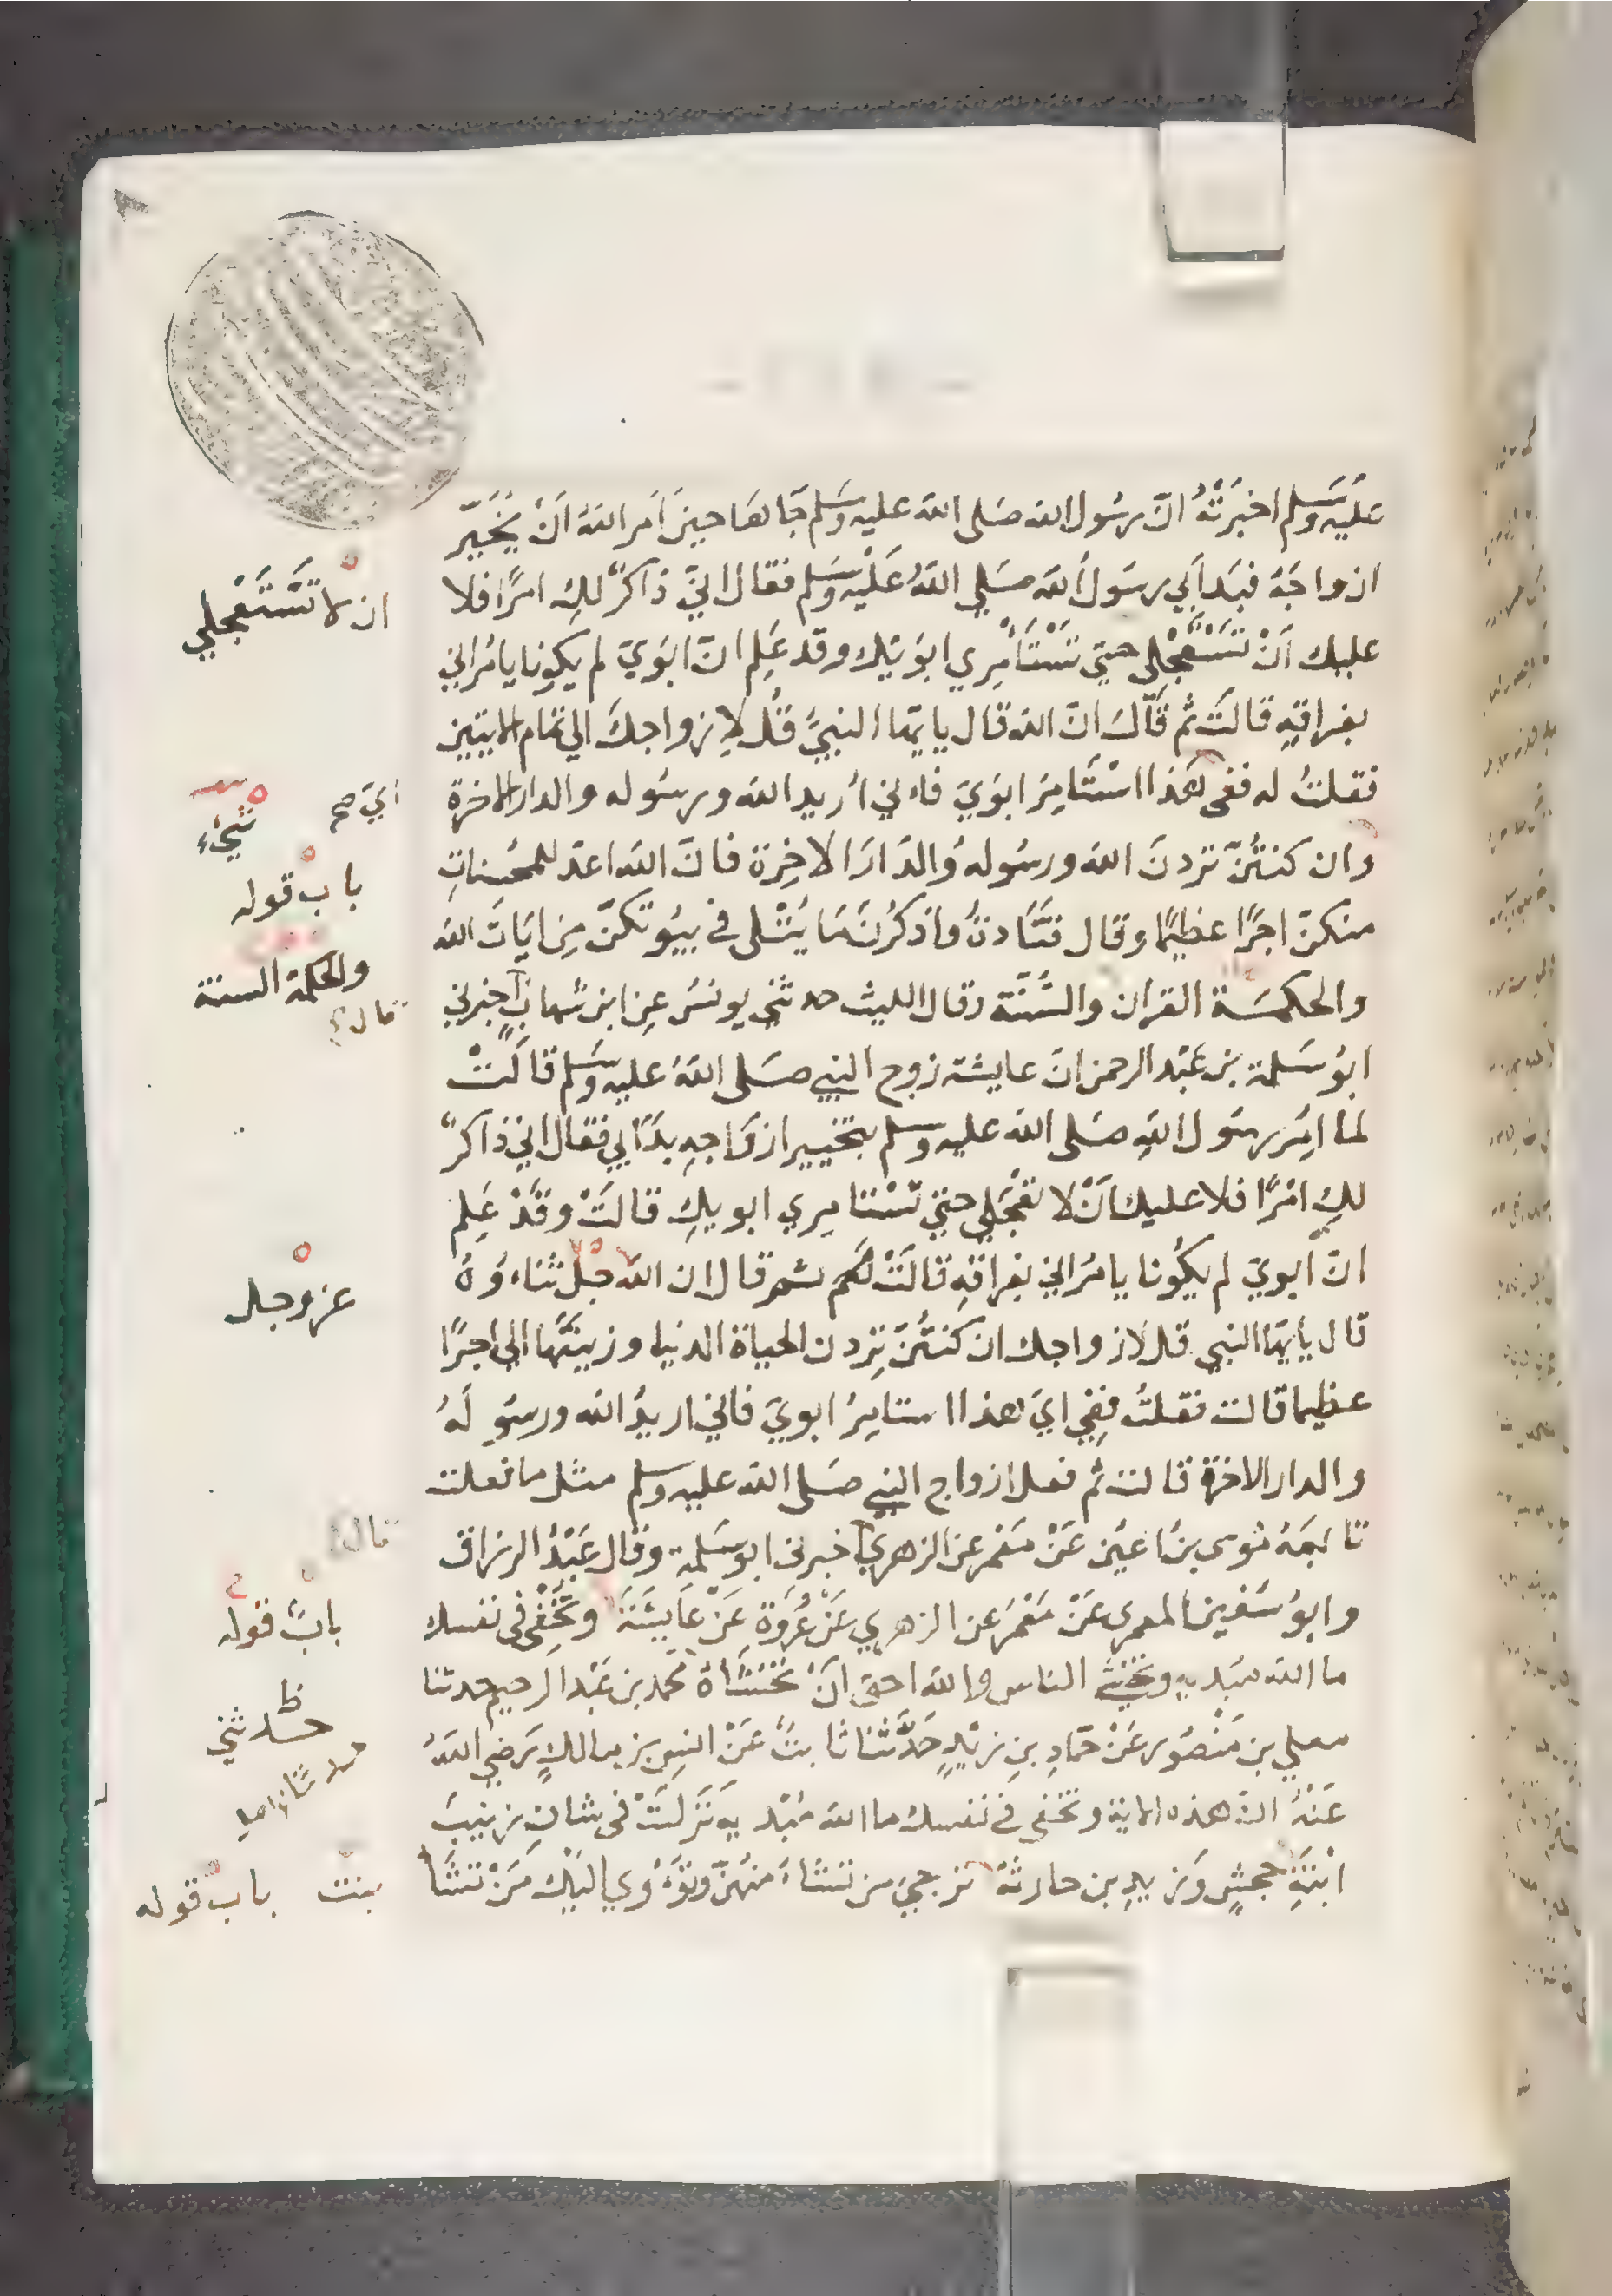 عليه وسلم اخبرته ان رسول الله صلى الله عليه وسلم جاها حين امر الله ان يخير
ازواجه فبدابي رسول الله صلى الله عليه وسلم فقال اني ذاكر لك امرا فلا
ان لا تستعجلي
عليك ان تستعجلي حتى تستامري ابويك وقد علم ان ابوي لم يكونا يامراني
بفراقه قالت ثم قال ان الله قال يايها النبي قل لازواجك الى تمام الايتين
فقلت له ففي هذا استامر ابوي فاني اريد الله ورسوله والدار الاخرة
اي
شيء
وان كنتن تردن الله ورسوله والدار الاخرة فان الله اعد للمحسنات
باب قوله
منكن اجرا عظيما وقال قتادة واذكرن ما يتلى في بيوتكن من ايات الله
والحكمة السنة
والحكمة القران والسنة وقال الليث حدثني يونس عن ابن شهاب اخبرني
قال
ابو سلمة بن عبد الرحمن ان عايشة زوج النبي صلى الله عليه وسلم قالت
لما امر رسول الله صلى الله عليه وسلم بتخيير ازواجه بدابي فقال اني ذاكر
لك امرا فلا عليك ان لا تعجلي حتى تستامري ابويك قالت وقد علم
ان ابوي لم يكونا يامراني بفراقه قالت ثم قال ان الله جل ثناءوه
عز وجل
قال يايها النبي قل لازواجك ان كنتن تردن الحياة الدنيا وزينتها الى اجرا
عظيما قالت فقلت ففي اي هذا استامر ابوي فاني اريد الله ورسوله
والدار الاخرة قالت ثم فعل ازواج النبي صلى الله عليه وسلم مثل ما فعلت
تابعه موسى بن اعين عن معمر عن الزهري اخبرني ابو سلمة وقال عبد الرزاق
قال
وابو سفين المعمري عن معمر عن الزهري عن عروة عن عايشة وتخفي في نفسك
باب قوله
ما الله مبديه وتخشى الناس والله احق ان تخشاه محمد بن عبد الرحيم حدثنا
حدثني
معلى بن منصور عن حماد بن زيد حدثنا ثابت عن انس بن مالك رضي الله
عنه ان هذه الاية وتخفي في نفسك ما الله مبديه نزلت في شان زينب
ابنة جحش وزيد بن حارثة ترجي من تشاء منهن وتؤوي اليك من تشا
بنت
باب قوله